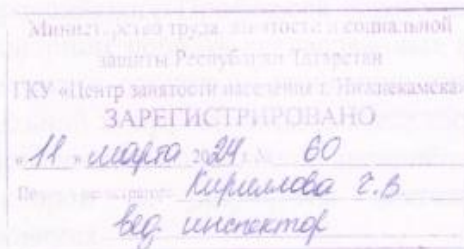 Министерство труда, занятости и социальной
защиты Республики Татарстан
ГКУ «Центр занятости населения г. Нижнекамска»
ЗАРЕГИСТРИРОВАНО
«11» марта 2024 г. № 60
Кириллова Г.В
вед. инспектор